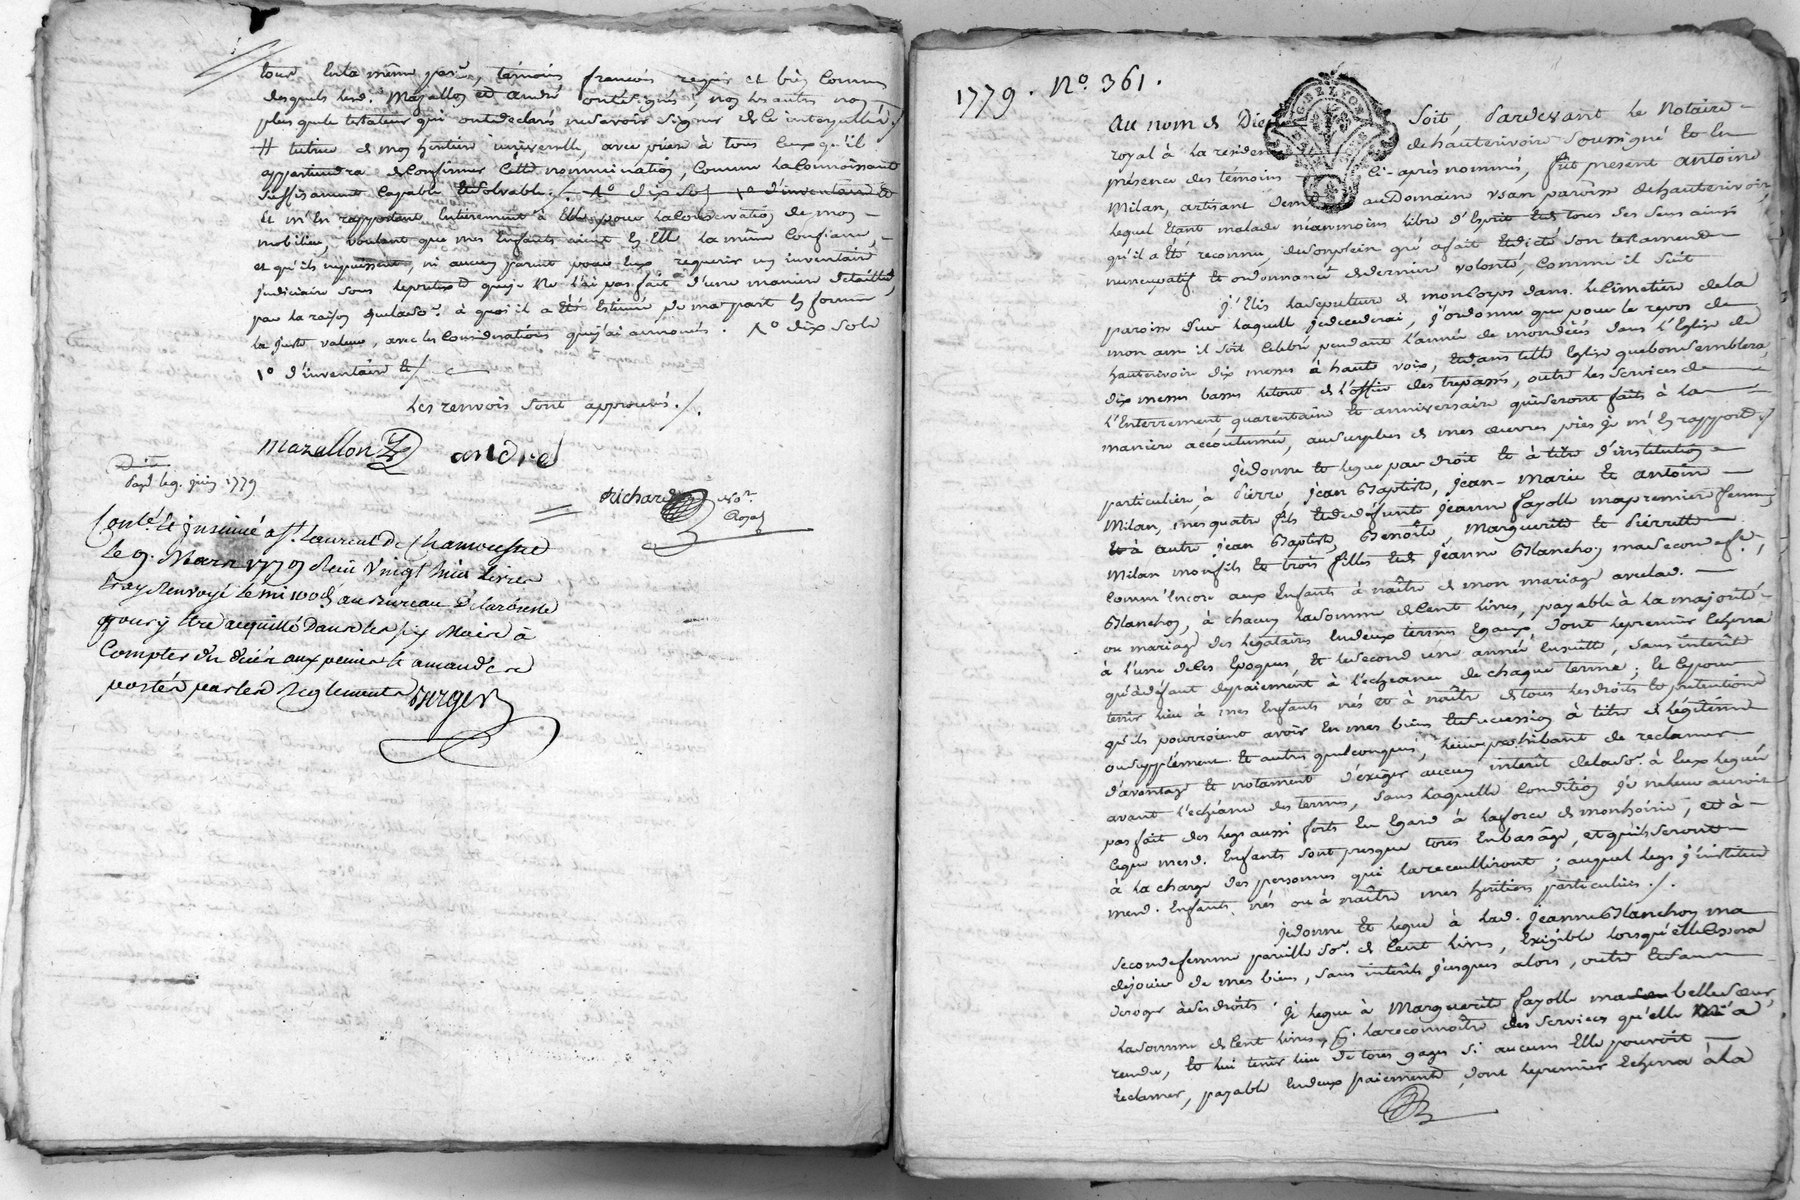 tous de la même par.sse, témoins françois requis et bien connus
desquels lesd. Mazallon et andré ont signés, non les autres non
plus que le testateur qui ont declaré ne savoir signer de ce interpellés
# tutrice de mon heritiere universelle, avec priere à tous ceux qu'il
appartiendra de confirmer cette nomination, comme la connoissant
suffisament capable et solvable. 1º dix sols 1º d'inventaire et
Et m'en rapportant entierement à elle pour la conservation de mon
mobilier, voulant que mes enfants aient en elle la même confiance,
et qu'ils ne puissent, ni aucun parent pour eux requerir un inventaire
judiciaire sous le pretexte que je ne l'ai pas fait d'une maniere detaillée,
par la raison que lad. so.e à quoi il a été estimé de ma part en forme
la juste valeur, avec les considerations que j'ai announcés. 1º dix sols
1º d'inventaire et/
Les renvois sont approuvés./.
Mazallon andré
Richard Not.re Royal
payé le 9. juin 1779
Con.lé et insinué à St. Laurent de Chamousset
le 9. Mars 1779 Reçu vingt huit livres
et ay renvoyé le mi 100.e au Bureau de Larbresle
pour y être acquitté Dans les six Mois à
Compter du décès aux peines et amandes
portés par les Reglements Berger
1779. Nº. 361.
G. DE LYON
Au nom de Dieu Soit, Pardevant le Notaire
royal à la residence de hauterivoire soussigné et en
présence des témoins ci-après nommés, fut présent antoine
Milan, artisant demt. au Domain usan paroisse de hauterivoire,
lequel étant malade néanmoins libre d'esprit et de tous ses sens ainsi
qu'il a été reconnu, de son plein gré a fait et dicté son testament
nuncupatif et ordonnance de derniere volonté, comme il suit
J'élis la sepulture de mon corps dans le cimetiere de la
paroisse sur laquelle je decederai, j'ordonne que pour le repos de
mon ame il soit celebré, pendant l'année de mon décès dans l'Eglise de
hauterivoire dix messes à haute voix, et dans telle Eglise que bon semblera,
dix messes basses le tout de l'office des trepassés, outre les services de
l'Enterrement quarantaine et anniversaire qui seront faits à la
maniere accoutumée, au surplus de mes œuvres pies je m'en rapporte ./
Je donne et legue par droit et à titre d'institution
particuliere, à Pierre, Jean Baptiste, Jean-Marie et antoine
Milan, mes quatre fils et de defunte Jeanne fayolle ma premiere femme,
Et à autre Jean Baptiste, Benoîte, Marguerite et Pierrette
Milan mon fils et trois filles et de Jeanne Blanchon ma seconde fe.,
comm'encore aux enfants à naître de mon mariage avec lad.
Blanchon, à chacun la somme de cent livres, payable à la majorité
ou mariage des légataires en deux termes égaux, dont le premier echerra
à l'une de ces époques, et le second une année ensuite, sans interêts
qu'à défaut de paiement à l'écheance de chaque terme; le tout pour
tenir lieu à mes enfants nés et à naître de tous les droits et pretentions
qu'ils pourroient avoir en mes biens et succession à titre de légitime
ou supplement et autres quelconques, leur prohibant de reclamer
d'avantage et notament d'exiger aucun interêt de lad. so. à eux leguée
avant l'echéance des termes, sans laquelle condition je ne leur aurois
pas fait des legs aussi forts eu egard à la force de mon hoirie, et à
ce que mesd. Enfants sont presque tous en bas âge, et qu'ils seront
à la charge des personnes qui la recueilliront; auquel legs j'institue
mesd. Enfants nés ou à naître mes heritiers particuliers./.
Je donne et legue à lad. Jeanne Blanchon ma
seconde femme pareille so.e de cent livres, exigible lorsqu'elle cessera
de jouir de mes biens, sans interêts jusques alors, outre et sans
deroger à ses droits Je legue à Marguerite fayolle ma belle sœur,
la somme de cent livres, pr. la reconnoître des services qu'elle m'a
rendu, et lui tenir lieu de tous gages si aucuns elle pouvoit
reclamer, payable en deux paiements, dont le premier echerra à la